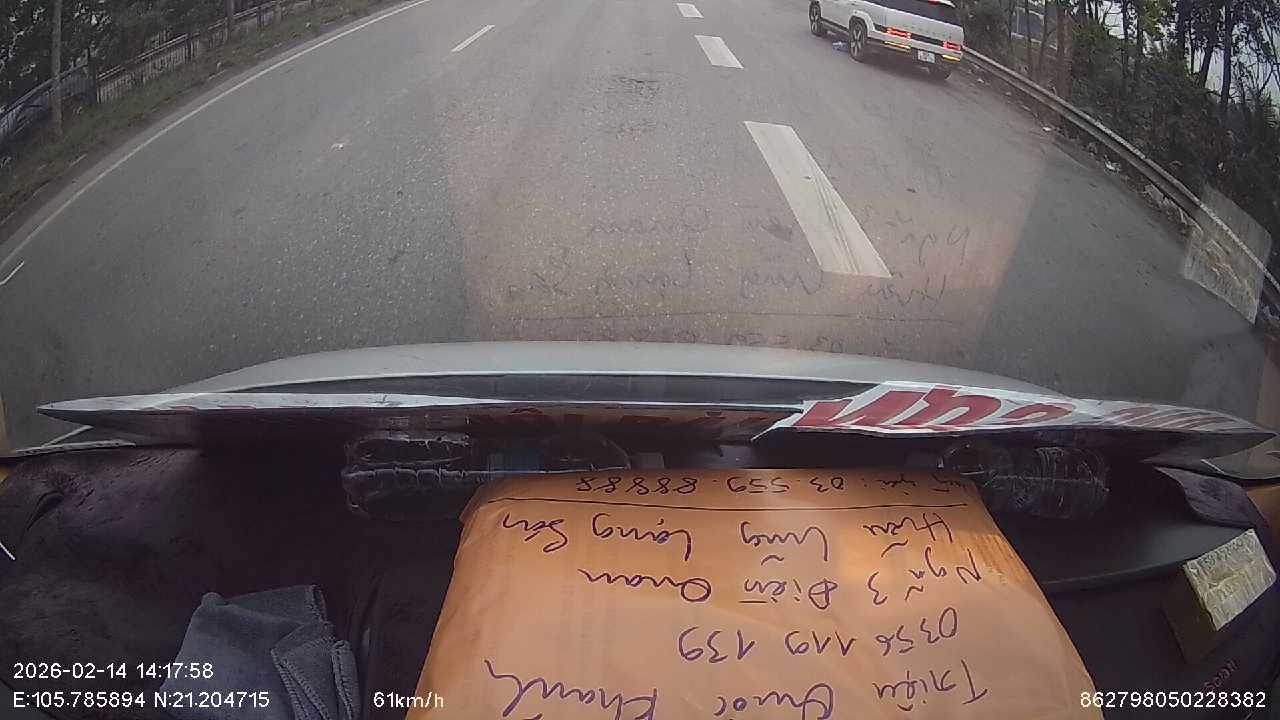 Triệu Quốc Khánh
0356 119 139
Ngã 3 Điền Quan
Hữu Lũng Lạng Sơn
03.559.88888
2026-02-14 14:17:58
E:105.785894 N:21.204715 61km/h 862798050228382